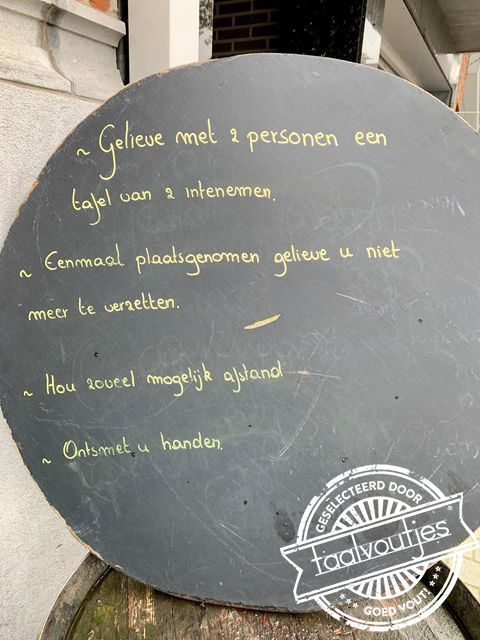 ~ Gelieve met 2 personen een
tafel van 2 intenemen.
~ Eenmaal plaatsgenomen gelieve u niet
meer te verzetten.
~ Hou zoveel mogelijk afstand
~ Ontsmet u handen.
GESELECTEERD DOOR
taalvoutjes
GOED VOUT!